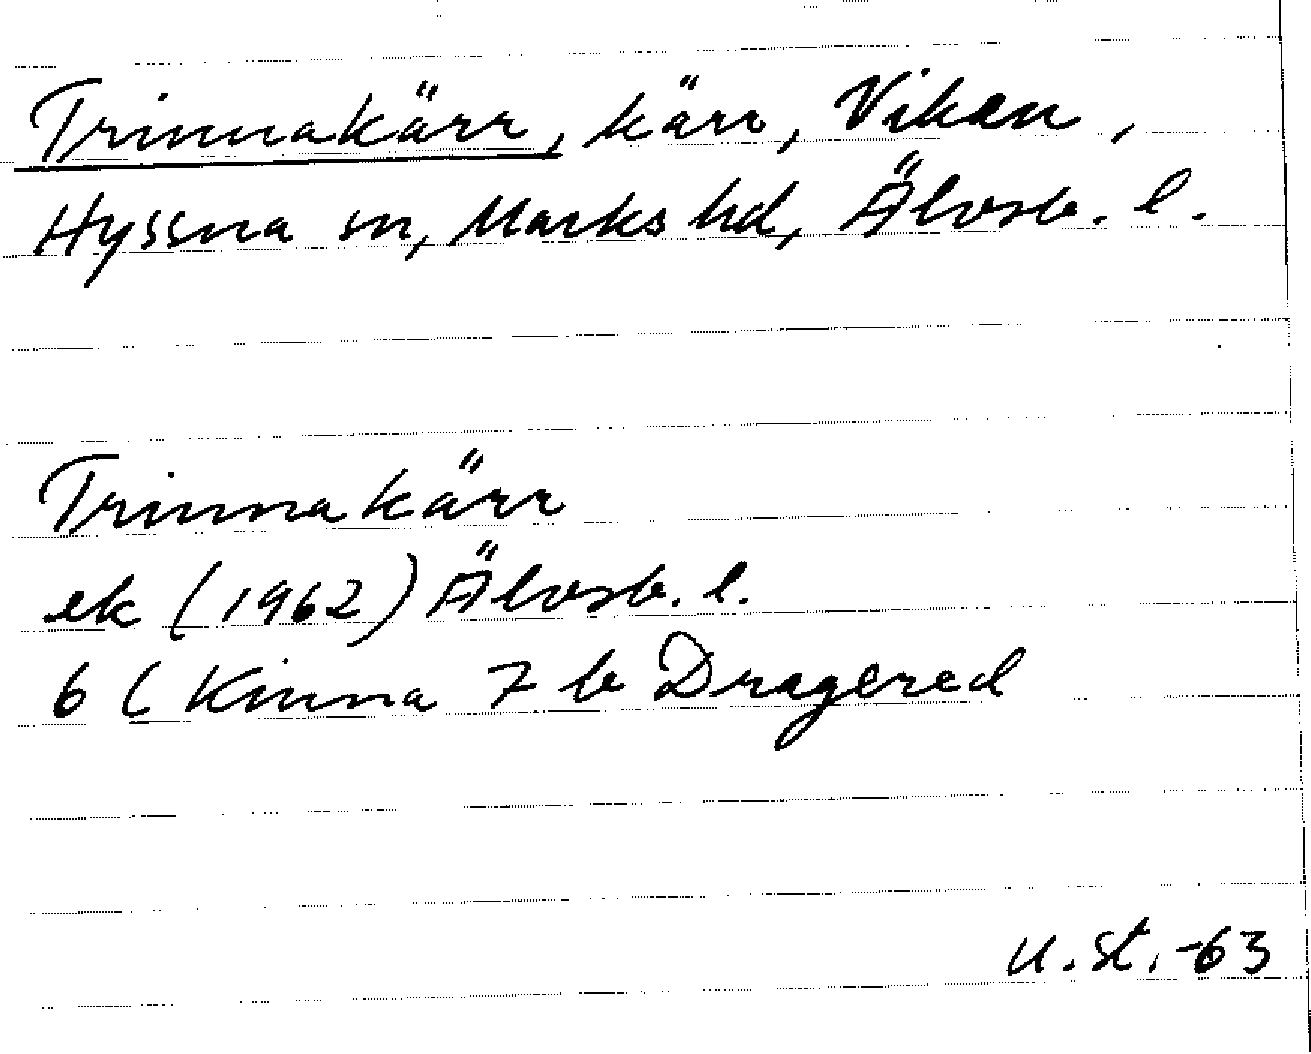 Trinnakärr, kärr, Viken,
Hyssna sn, Marks hd, Älvsb. l.
Trinnakärr
ek (1962) Älvsb. l.
6 C Kinna 7 b Dragered
U. St. -63